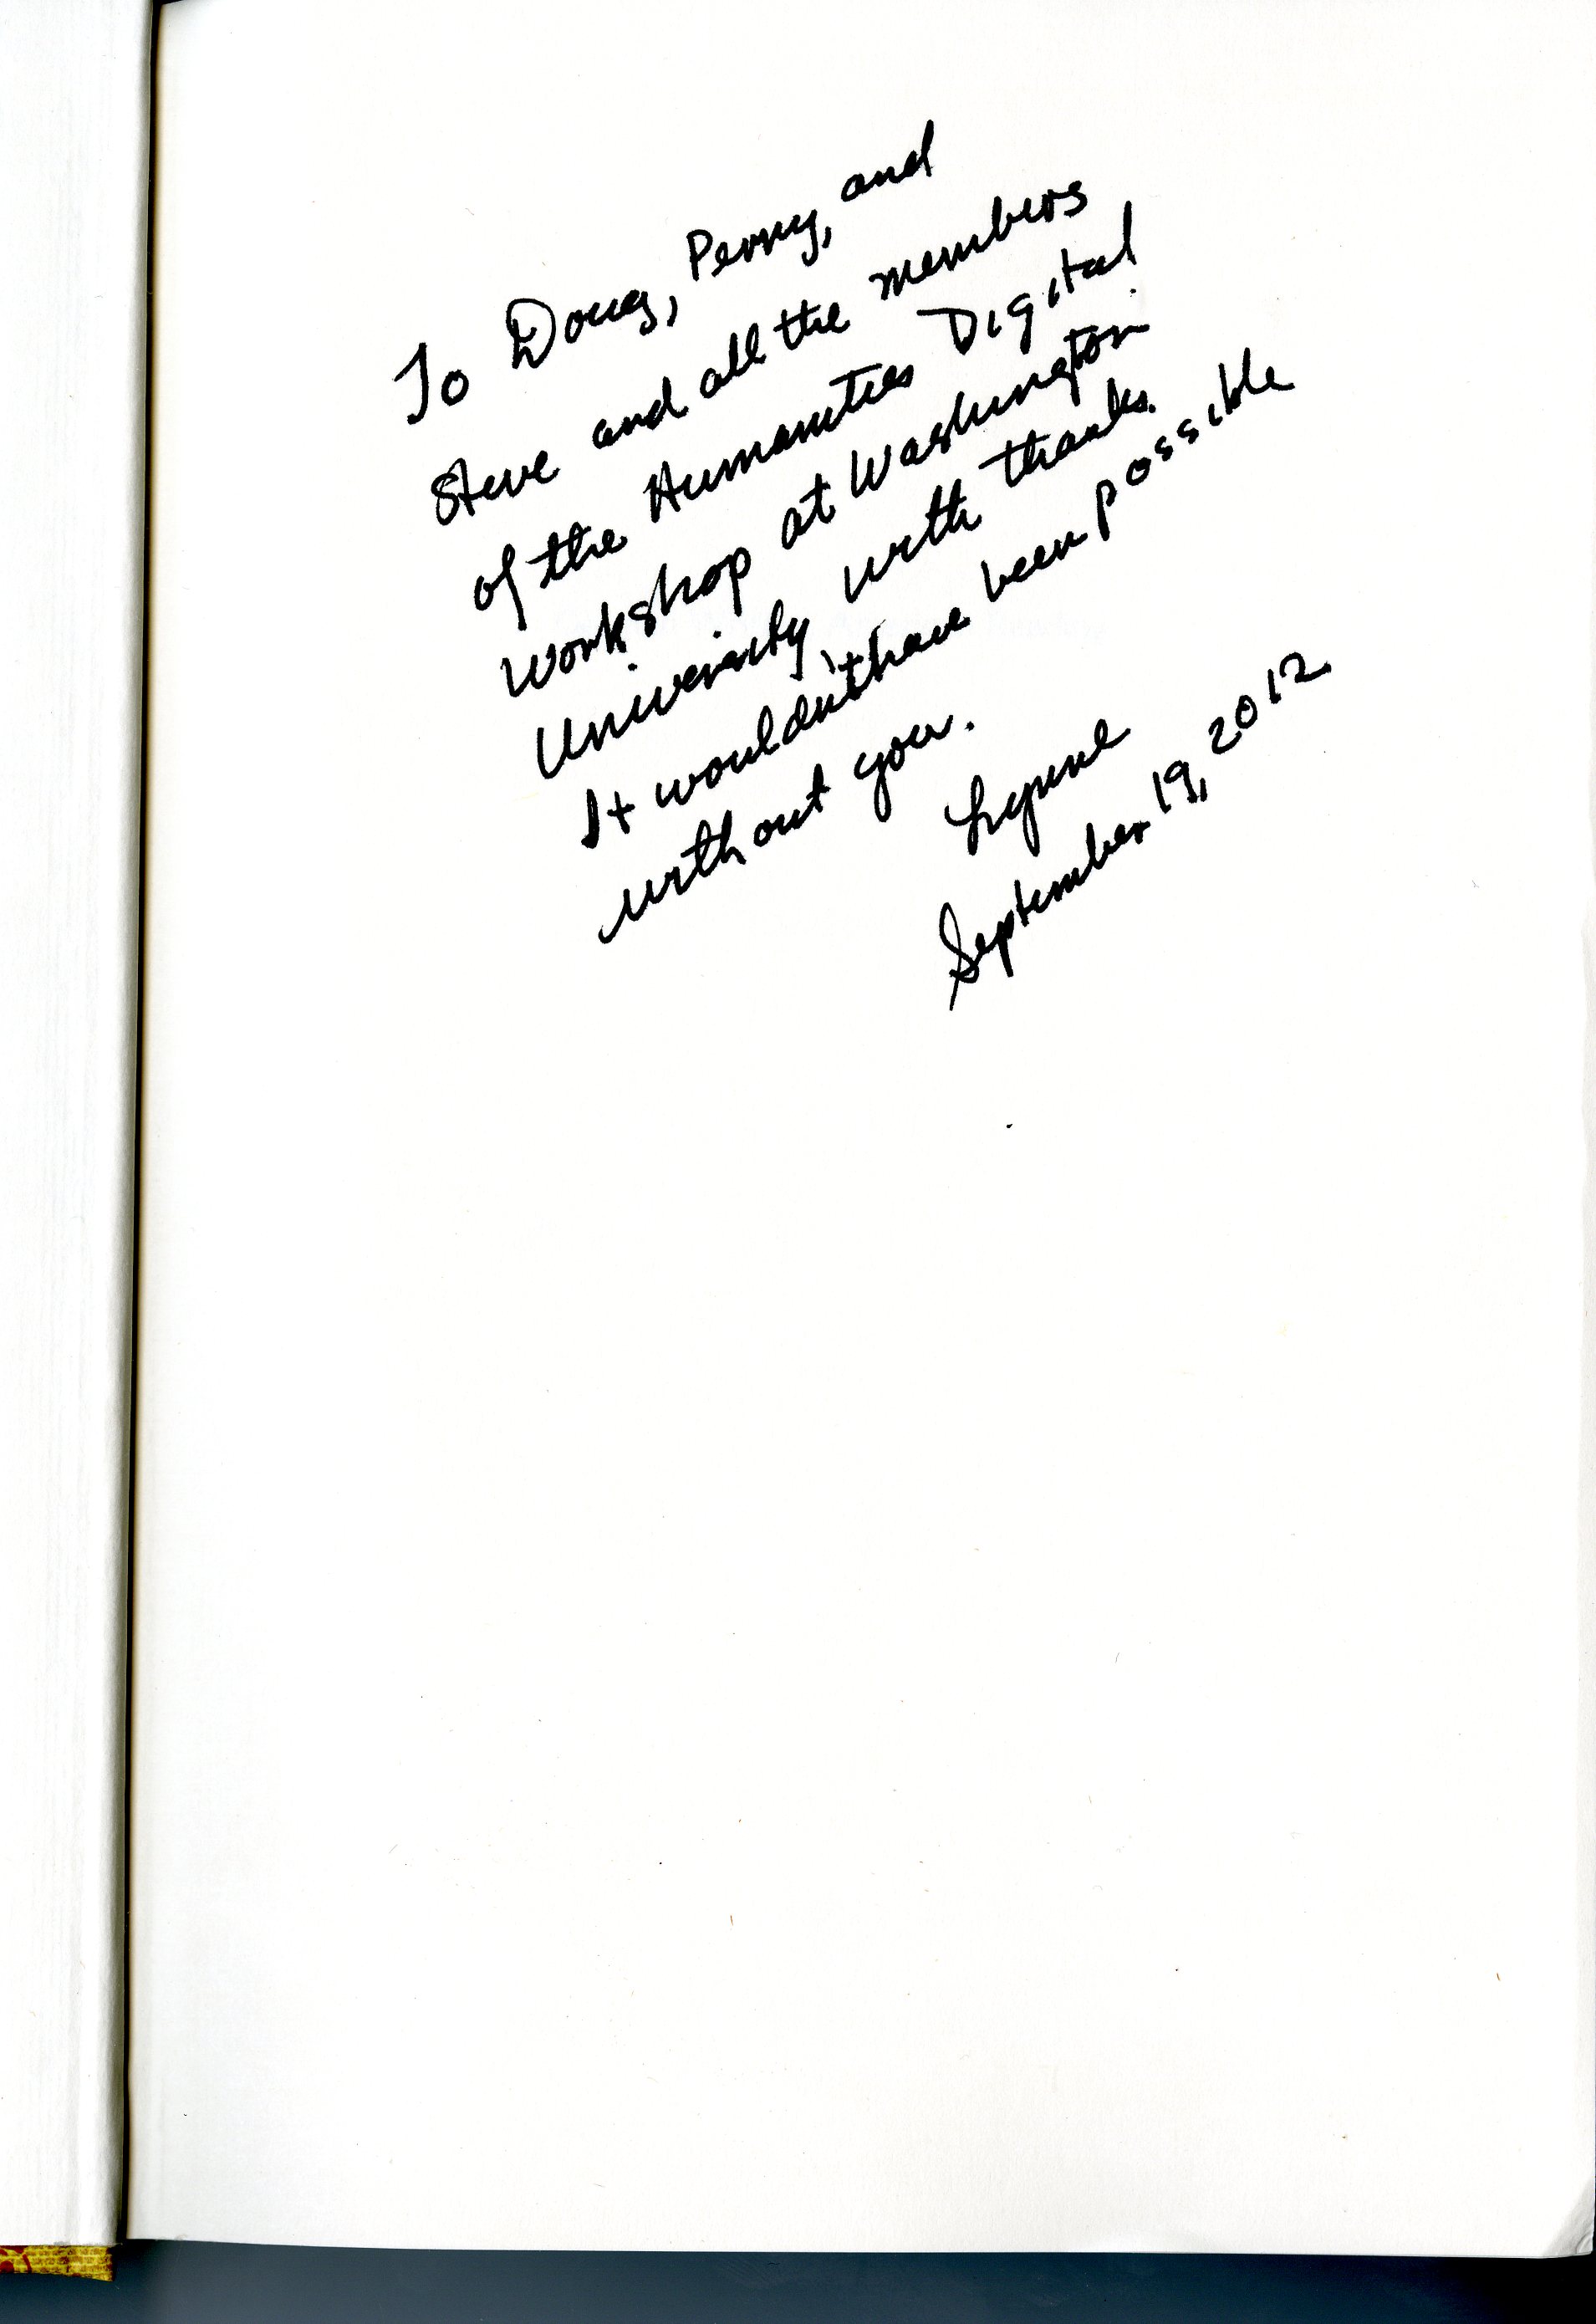 To Doug, Perry, and
Steve and all the members
of the Humanities Digital
Workshop at Washington
University, with thanks.
It wouldn't have been possible
without you.
Lynne
September 19, 2012